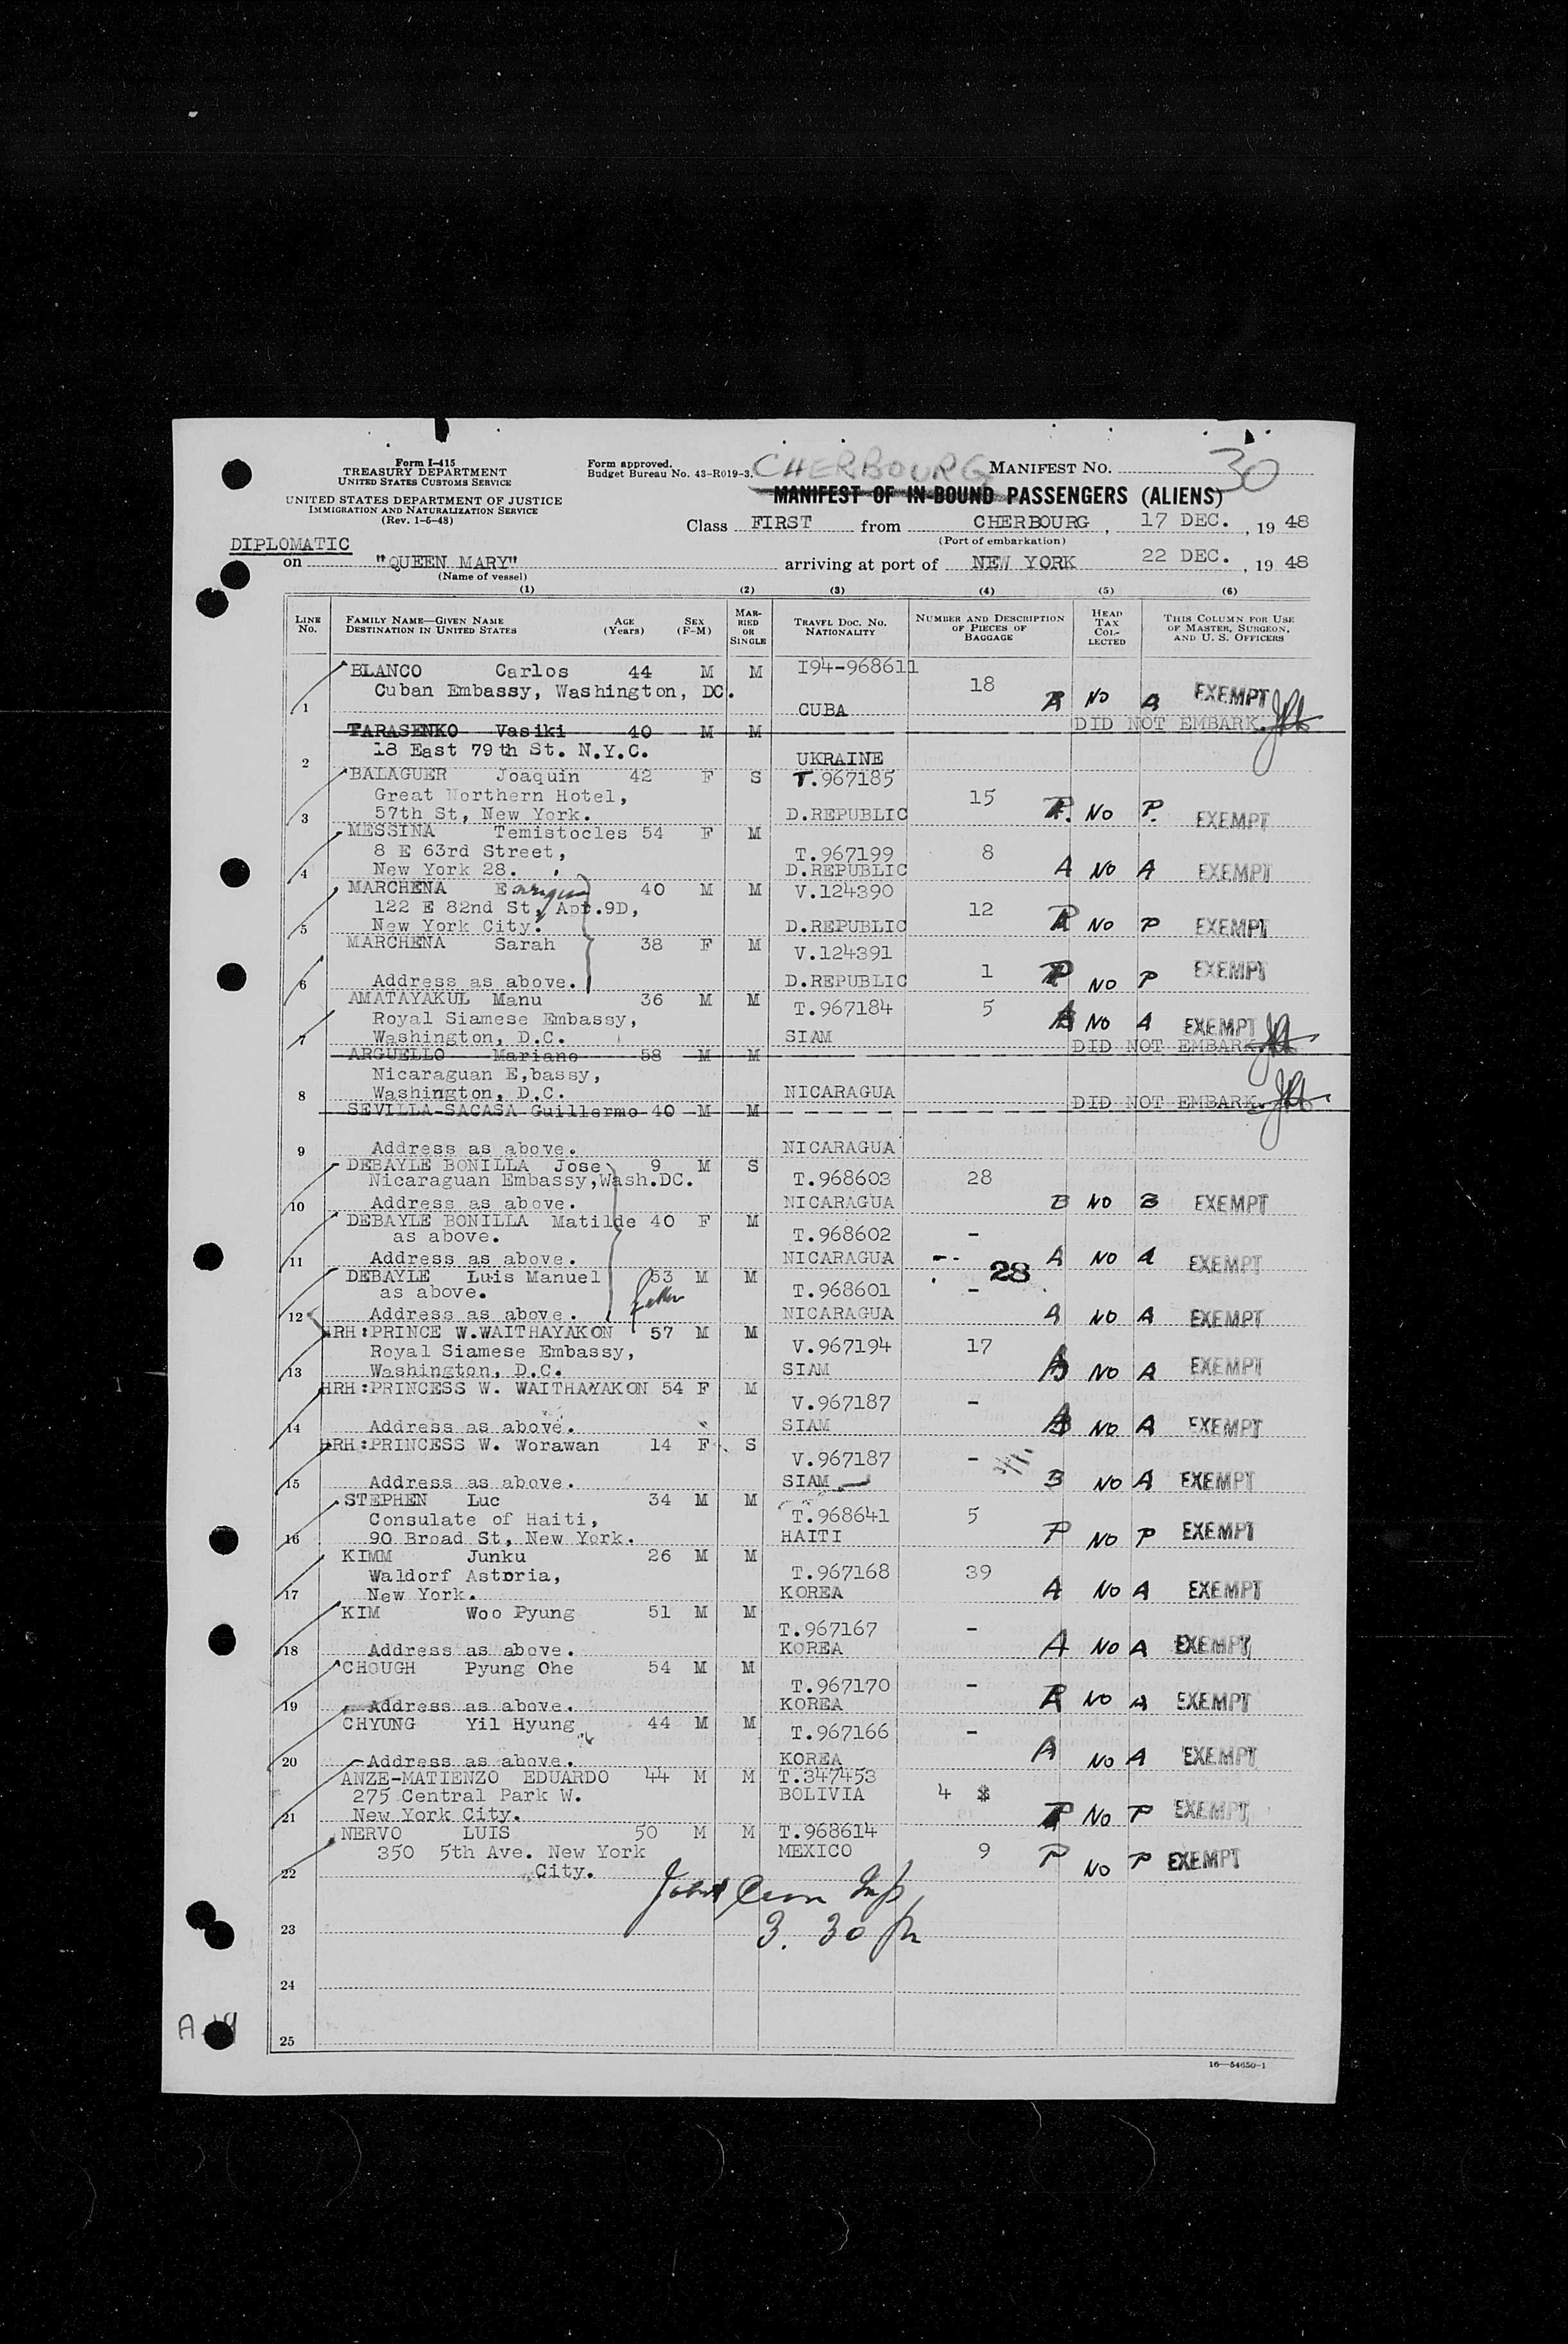 Form I-415
TREASURY DEPARTMENT
UNITED STATES CUSTOMS SERVICE
UNITED STATES DEPARTMENT OF JUSTICE
IMMIGRATION AND NATURALIZATION SERVICE
(Rev. 1-6-48)
Form approved.
Budget Bureau No. 43-R019-3.
CHERBOURG
MANIFEST NO. 30
MANIFEST OF IN-BOUND PASSENGERS (ALIENS)
Class FIRST from CHERBOURG, 17 DEC., 19 48
(Port of embarkation)
DIPLOMATIC
on "QUEEN MARY" arriving at port of NEW YORK 22 DEC., 19 48
(Name of vessel)
(1) (2) (3) (4) (5) (6)
LINE NO. FAMILY NAME—GIVEN NAME DESTINATION IN UNITED STATES AGE (Years) SEX (F-M) MARRIED OR SINGLE TRAVEL DOC. NO. NATIONALITY NUMBER AND DESCRIPTION OF PIECES OF BAGGAGE HEAD TAX COLLECTED THIS COLUMN FOR USE OF MASTER, SURGEON, AND U. S. OFFICERS
BLANCO Carlos 44 M M I94-968611
Cuban Embassy, Washington, DC. 18
1 CUBA A NO A EXEMPT
TARASENKO Vasiki 40 M M DID NOT EMBARK.
18 East 79th St. N.Y.C.
2 UKRAINE
BALAGUER Joaquin 42 F S T.967185
Great Northern Hotel, 15
3 57th St, New York. D.REPUBLIC P. NO P. EXEMPT
MESSINA Temistocles 54 F M
8 E 63rd Street, T.967199 8
4 New York 28. D.REPUBLIC A NO A EXEMPT
MARCHENA Enrique 40 M M V.124390
122 E 82nd St, Apr.9D, 12
5 New York City. D.REPUBLIC P NO P EXEMPT
MARCHENA Sarah 38 F M V.124391
6 Address as above. D.REPUBLIC 1 P NO P EXEMPT
AMATAYAKUL Manu 36 M M T.967184 5
Royal Siamese Embassy, A NO A EXEMPT
7 Washington, D.C. SIAM
ARGUELLO Mariano 58 M M DID NOT EMBARK.
Nicaraguan E,bassy,
8 Washington, D.C. NICARAGUA
SEVILLA-SACASA Guillermo 40 M M DID NOT EMBARK.
9 Address as above. NICARAGUA
DEBAYLE BONILLA Jose 9 M S
Nicaraguan Embassy,Wash.DC. T.968603 28
10 Address as above. NICARAGUA B NO B EXEMPT
DEBAYLE BONILLA Matilde 40 F M
as above. T.968602 -
11 Address as above. NICARAGUA A NO A EXEMPT
28
DEBAYLE Luis Manuel 53 M M
as above. T.968601 -
12 Address as above. NICARAGUA A NO A EXEMPT
HRH:PRINCE W.WAITHAYAKON 57 M M
Royal Siamese Embassy, V.967194 17
13 Washington, D.C. SIAM A NO A EXEMPT
HRH:PRINCESS W. WAITHAYAKON 54 F M
V.967187 -
14 Address as above. SIAM A NO A EXEMPT
HRH:PRINCESS W. Worawan 14 F S
V.967187 -
15 Address as above. SIAM B NO A EXEMPT
STEPHEN Luc 34 M M
Consulate of Haiti, T.968641 5
16 90 Broad St, New York. HAITI P NO P EXEMPT
KIMM Junku 26 M M
Waldorf Astoria, T.967168 39
17 New York. KOREA A NO A EXEMPT
KIM Woo Pyung 51 M M
T.967167 -
18 Address as above. KOREA A NO A EXEMPT
CHOUGH Pyung Ohe 54 M M
T.967170 -
19 Address as above. KOREA A NO A EXEMPT
CHYUNG Yil Hyung 44 M M T.967166 -
20 Address as above. KOREA A NO A EXEMPT
ANZE-MATIENZO EDUARDO 44 M M T.347453
275 Central Park W. BOLIVIA 4
21 New York City. P NO P EXEMPT
NERVO LUIS 50 M M T.968614
350 5th Ave. New York MEXICO 9 P NO P EXEMPT
22 City.
23 3. 30
24
25
16—54650-1